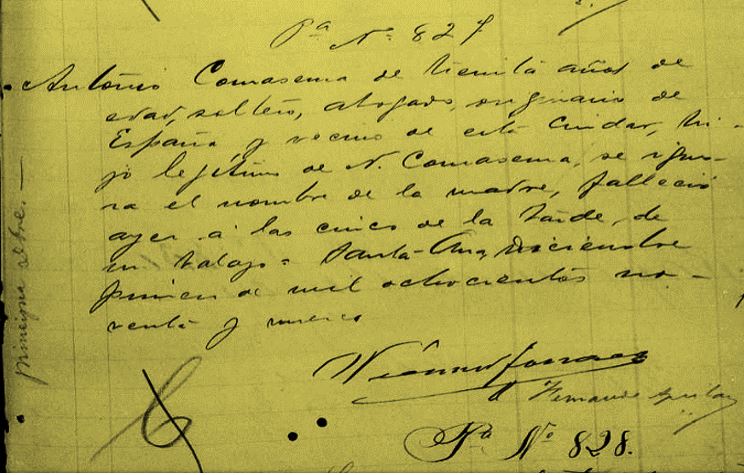 Pa No 827
Antonio Comasema de treinta años de
edad, soltero, abogado, originario de
España y vecino de esta ciudad, hi-
jo lejítimo de N. Comasema, se igno-
ra el nombre de la madre, falleció
ayer á las cinco de la tarde, de
un balazo = Santa Ana, Diciembre
primero de mil ochocientos no-
venta y nueve
Fernando Aguilar
Pa No 828.